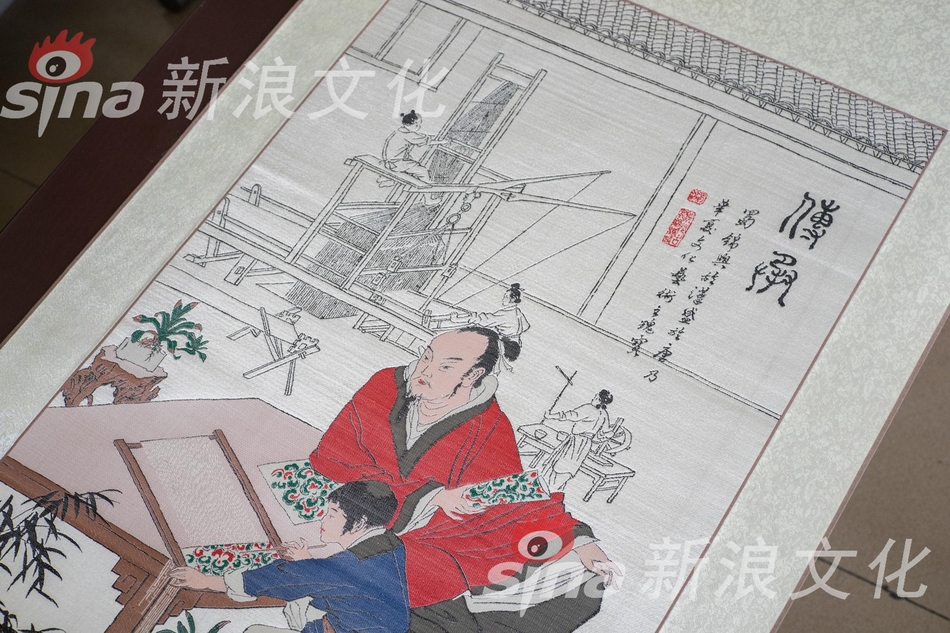 sina 新浪文化
傳承
蜀錦興於漢盛於唐乃
華夏文化藝術之瑰寶
sina 新浪文化